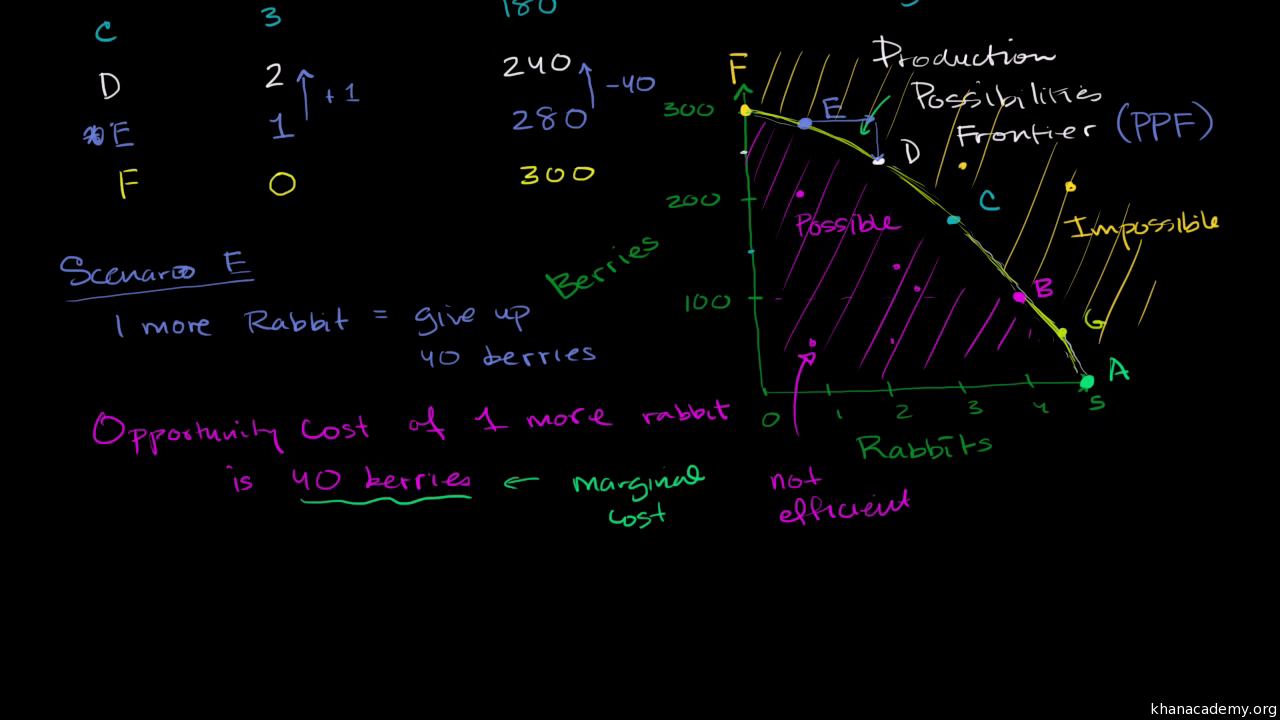 C 3 180
D 2 240
+1 -40
E 1 280
F 0 300
Scenario E
1 more Rabbit = give up
40 berries
Opportunity cost of 1 more rabbit
is 40 berries ← marginal
cost
F
Production
Possibilities
Frontier (PPF)
300
E
D
200
C
Possible
Impossible
Berries
100
B
G
A
0 1 2 3 4 5
Rabbits
not
efficient
khanacademy.org